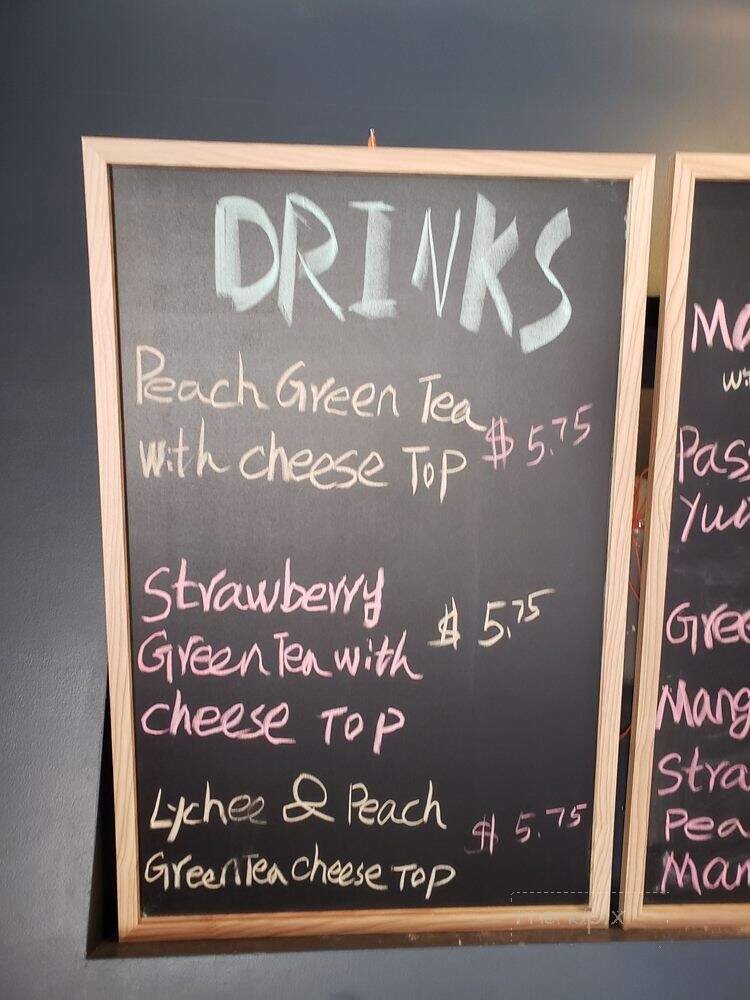 DRINKS
Peach Green Tea
with cheese Top $ 5.75
Strawberry
Green Tea with $ 5.75
cheese TOP
Lychee & Peach
Green Tea cheese TOP $ 5.75
Gree
Mang
Stra
Pea
Man